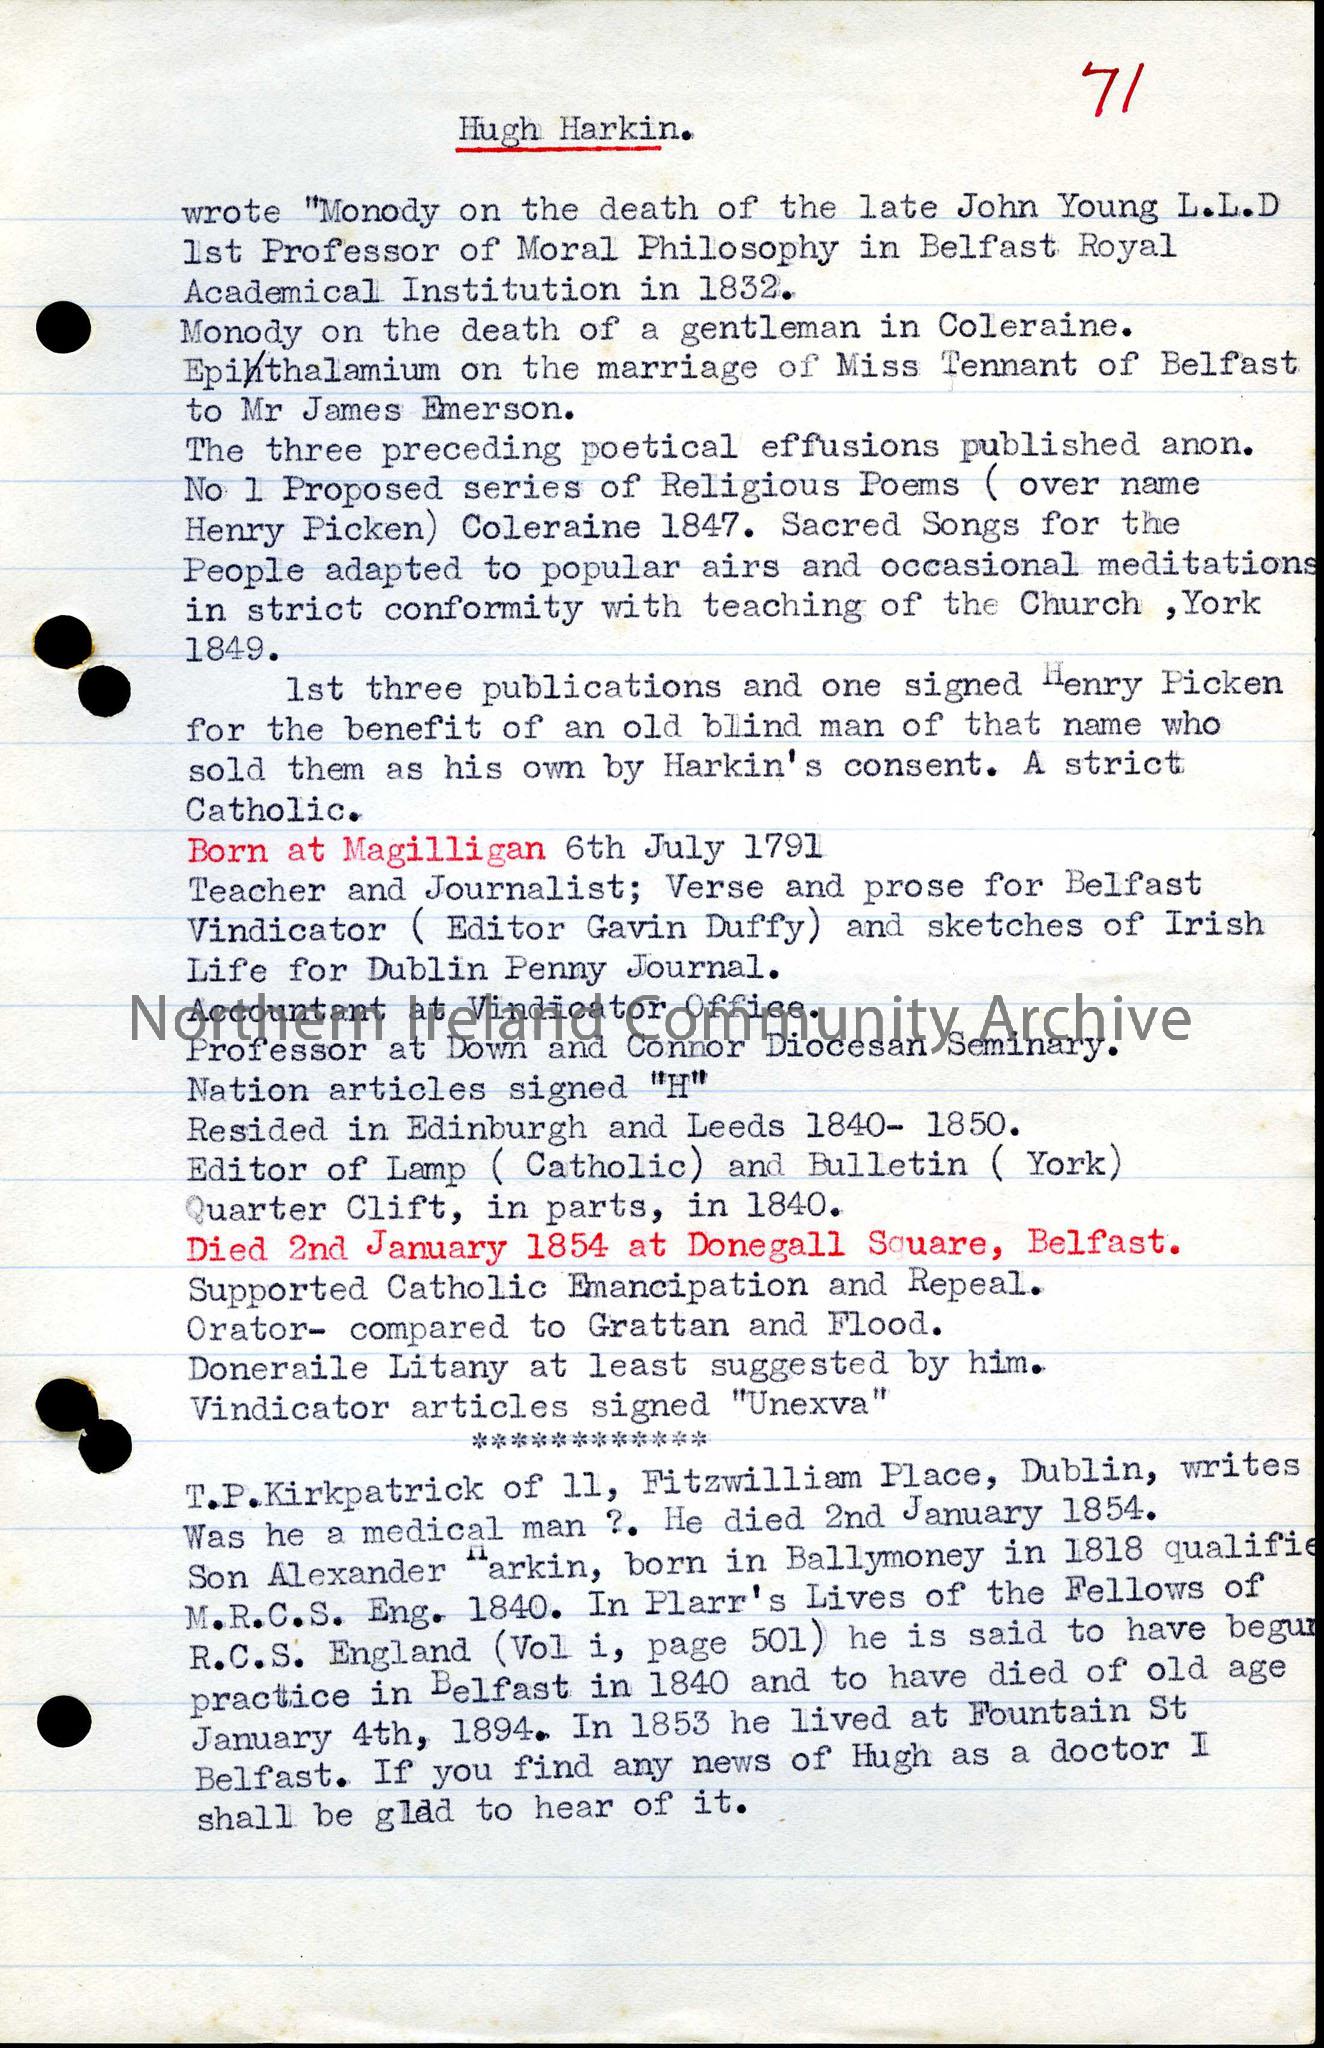 71
Hugh Harkin.
wrote "Monody on the death of the late John Young L.L.D
1st Professor of Moral Philosophy in Belfast Royal
Academical Institution in 1832.
Monody on the death of a gentleman in Coleraine.
Epithalamium on the marriage of Miss Tennant of Belfast
to Mr James Emerson.
The three preceding poetical effusions published anon.
No 1 Proposed series of Religious Poems ( over name
Henry Picken) Coleraine 1847. Sacred Songs for the
People adapted to popular airs and occasional meditations
in strict conformity with teaching of the Church ,York
1849.
1st three publications and one signed Henry Picken
for the benefit of an old blind man of that name who
sold them as his own by Harkin's consent. A strict
Catholic.
Born at Magilligan 6th July 1791
Teacher and Journalist; Verse and prose for Belfast
Vindicator ( Editor Gavin Duffy) and sketches of Irish
Life for Dublin Penny Journal.
Accountant at Vindicator Office.
Northern Ireland Community Archive
Professor at Down and Connor Diocesan Seminary.
Nation articles signed "H"
Resided in Edinburgh and Leeds 1840- 1850.
Editor of Lamp ( Catholic) and Bulletin ( York)
Quarter Clift, in parts, in 1840.
Died 2nd January 1854 at Donegall Square, Belfast.
Supported Catholic Emancipation and Repeal.
Orator- compared to Grattan and Flood.
Doneraile Litany at least suggested by him.
Vindicator articles signed "Unexva"
************
T.P.Kirkpatrick of 11, Fitzwilliam Place, Dublin, writes
Was he a medical man ?. He died 2nd January 1854.
Son Alexander Harkin, born in Ballymoney in 1818 qualifie
M.R.C.S. Eng. 1840. In Plarr's Lives of the Fellows of
R.C.S. England (Vol i, page 501) he is said to have begun
practice in Belfast in 1840 and to have died of old age
January 4th, 1894. In 1853 he lived at Fountain St
Belfast. If you find any news of Hugh as a doctor I
shall be glad to hear of it.